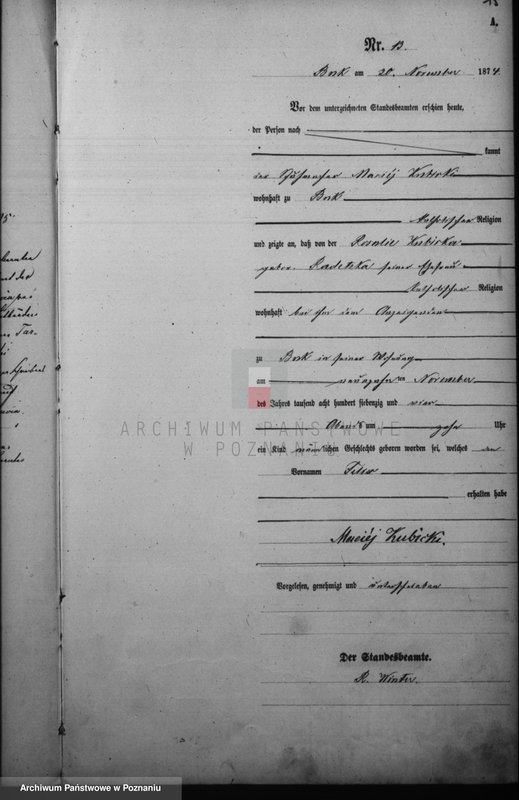 15
A.
Nr. 13.
Bork am 20. November 1874.
Vor dem unterzeichneten Standesbeamten erschien heute,
der Person nach
kannt
der Schuhmacher Maciej Kubicki
wohnhaft zu Bork
katholischer Religion
und zeigte an, daß von der Rosalie Kubicka
geber. Radetzka seiner Ehefrau
katholischer Religion
wohnhaft bei ihm dem Anzeigenden
zu Bork in seiner Wohnung
am neunzehnten November
des Jahres tausend acht hundert siebenzig und vier
Abends um zehn Uhr
ein Kind männlichen Geschlechts geboren worden sei, welches den
Vornamen
erhalten habe
Maciéj Kubicki.
Vorgelesen, genehmigt und unterschrieben
Der Standesbeamte.
R. Winter.
ARCHIWUM PAŃSTWOWE
W POZNANIU
Archiwum Państwowe w Poznaniu